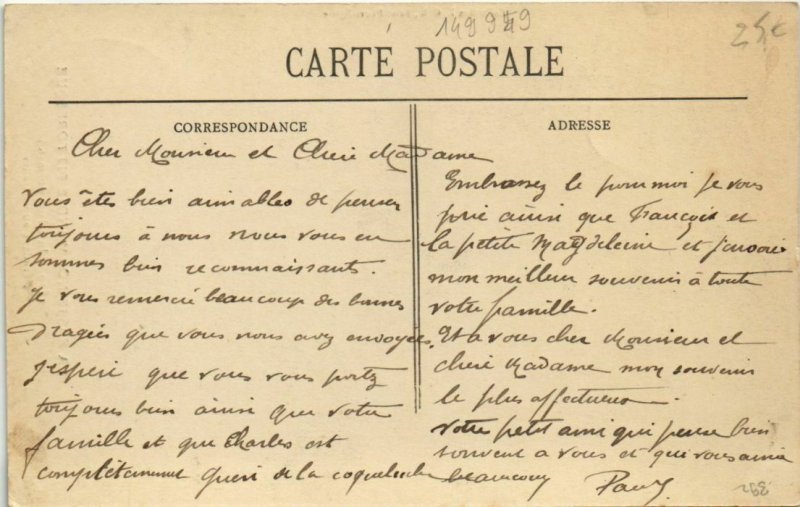 149949
25c
CARTE POSTALE
CORRESPONDANCE
Cher Monsieur et Chère Madame
Vous êtes bien aimables de penser
toujours à nous nous vous en
sommes bien reconnaissants.
Je vous remercie beaucoup des bonnes
Dragées que vous nous avez envoyées.
J'espère que vous vous portez
toujours bien ainsi que votre
famille et que Charles est
complètement guéri de la coqueluche
ADRESSE
Embrassez le pour moi je vous
prie ainsi que François et
la petite Magdeleine et j'envoie
mon meilleur souvenir à toute
votre famille.
Et à vous cher Monsieur et
chère Madame mon souvenir
le plus affectueux.
Votre petit ami qui pense bien
souvent à vous et qui vous aime
beaucoup Paul